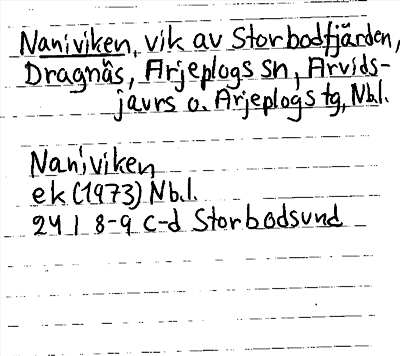 Naniviken, vik av Storbodfjärden,
Dragnäs, Arjeplogs sn, Arvids-
javrs o. Arjeplogs tg, Nb.l.
Naniviken
ek (1973) Nb.l.
24 I 8-9 c-d Storbodsund